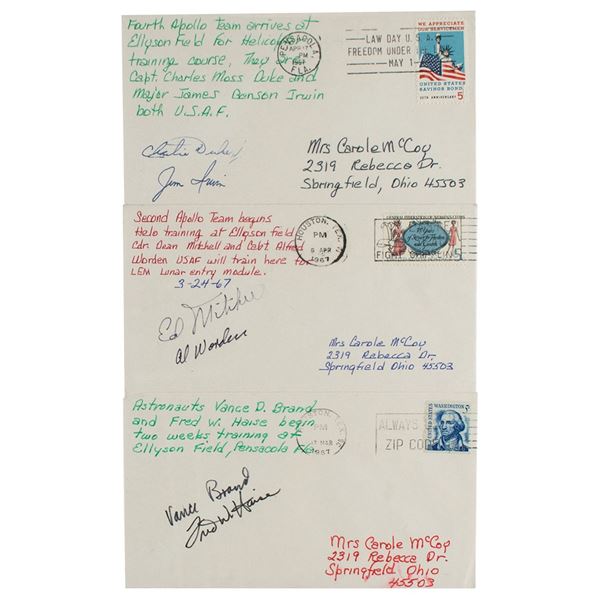 Fourth Apollo Team arrives at
Ellyson Field for Helicopter
training course. They are
Capt. Charles Moss Duke and
Major James Benson Irwin
both U.S.A.F.
PENSACOLA,
APR 17
PM
1967
FLA.
LAW DAY U.S.A.
FREEDOM UNDER
MAY 1
WE APPRECIATE
OUR SERVICEMEN
UNITED STATES
SAVINGS BOND
25TH ANNIVERSARY 5
Charlie Duke
Jim Irwin
Mrs Carole McCoy
2319 Rebecca Dr.
Sbringfield, Ohio 45503
Second Apollo Team begins
Helo training at Ellyson field
Cdr. Dean Mitchell and Capt. Alfred
Worden USAF will train here for
LEM Lunar entry module.
3-24-67
HOUSTON, TEX.
PM
6 APR
1967
GENERAL FEDERATION OF WOMEN'S CLUBS
FIGHT
5
Ed Mitchell
Al Worden
Mrs Carole McCoy
2319 Rebecca Dr.
Springfield Ohio 45503
Astronauts Vance D. Brand
and Fred W. Haise begin
two weeks training at
Ellyson Field, Pensacola Fla.
HOUSTON, TEX.
PM
17 MAR
1967
ALWAYS
ZIP CODE
UNITED STATES
WASHINGTON
5
Vance Brand
Fred W. Haise
Mrs Carole McCoy
2319 Rebecca Dr.
Springfield Ohio
45503